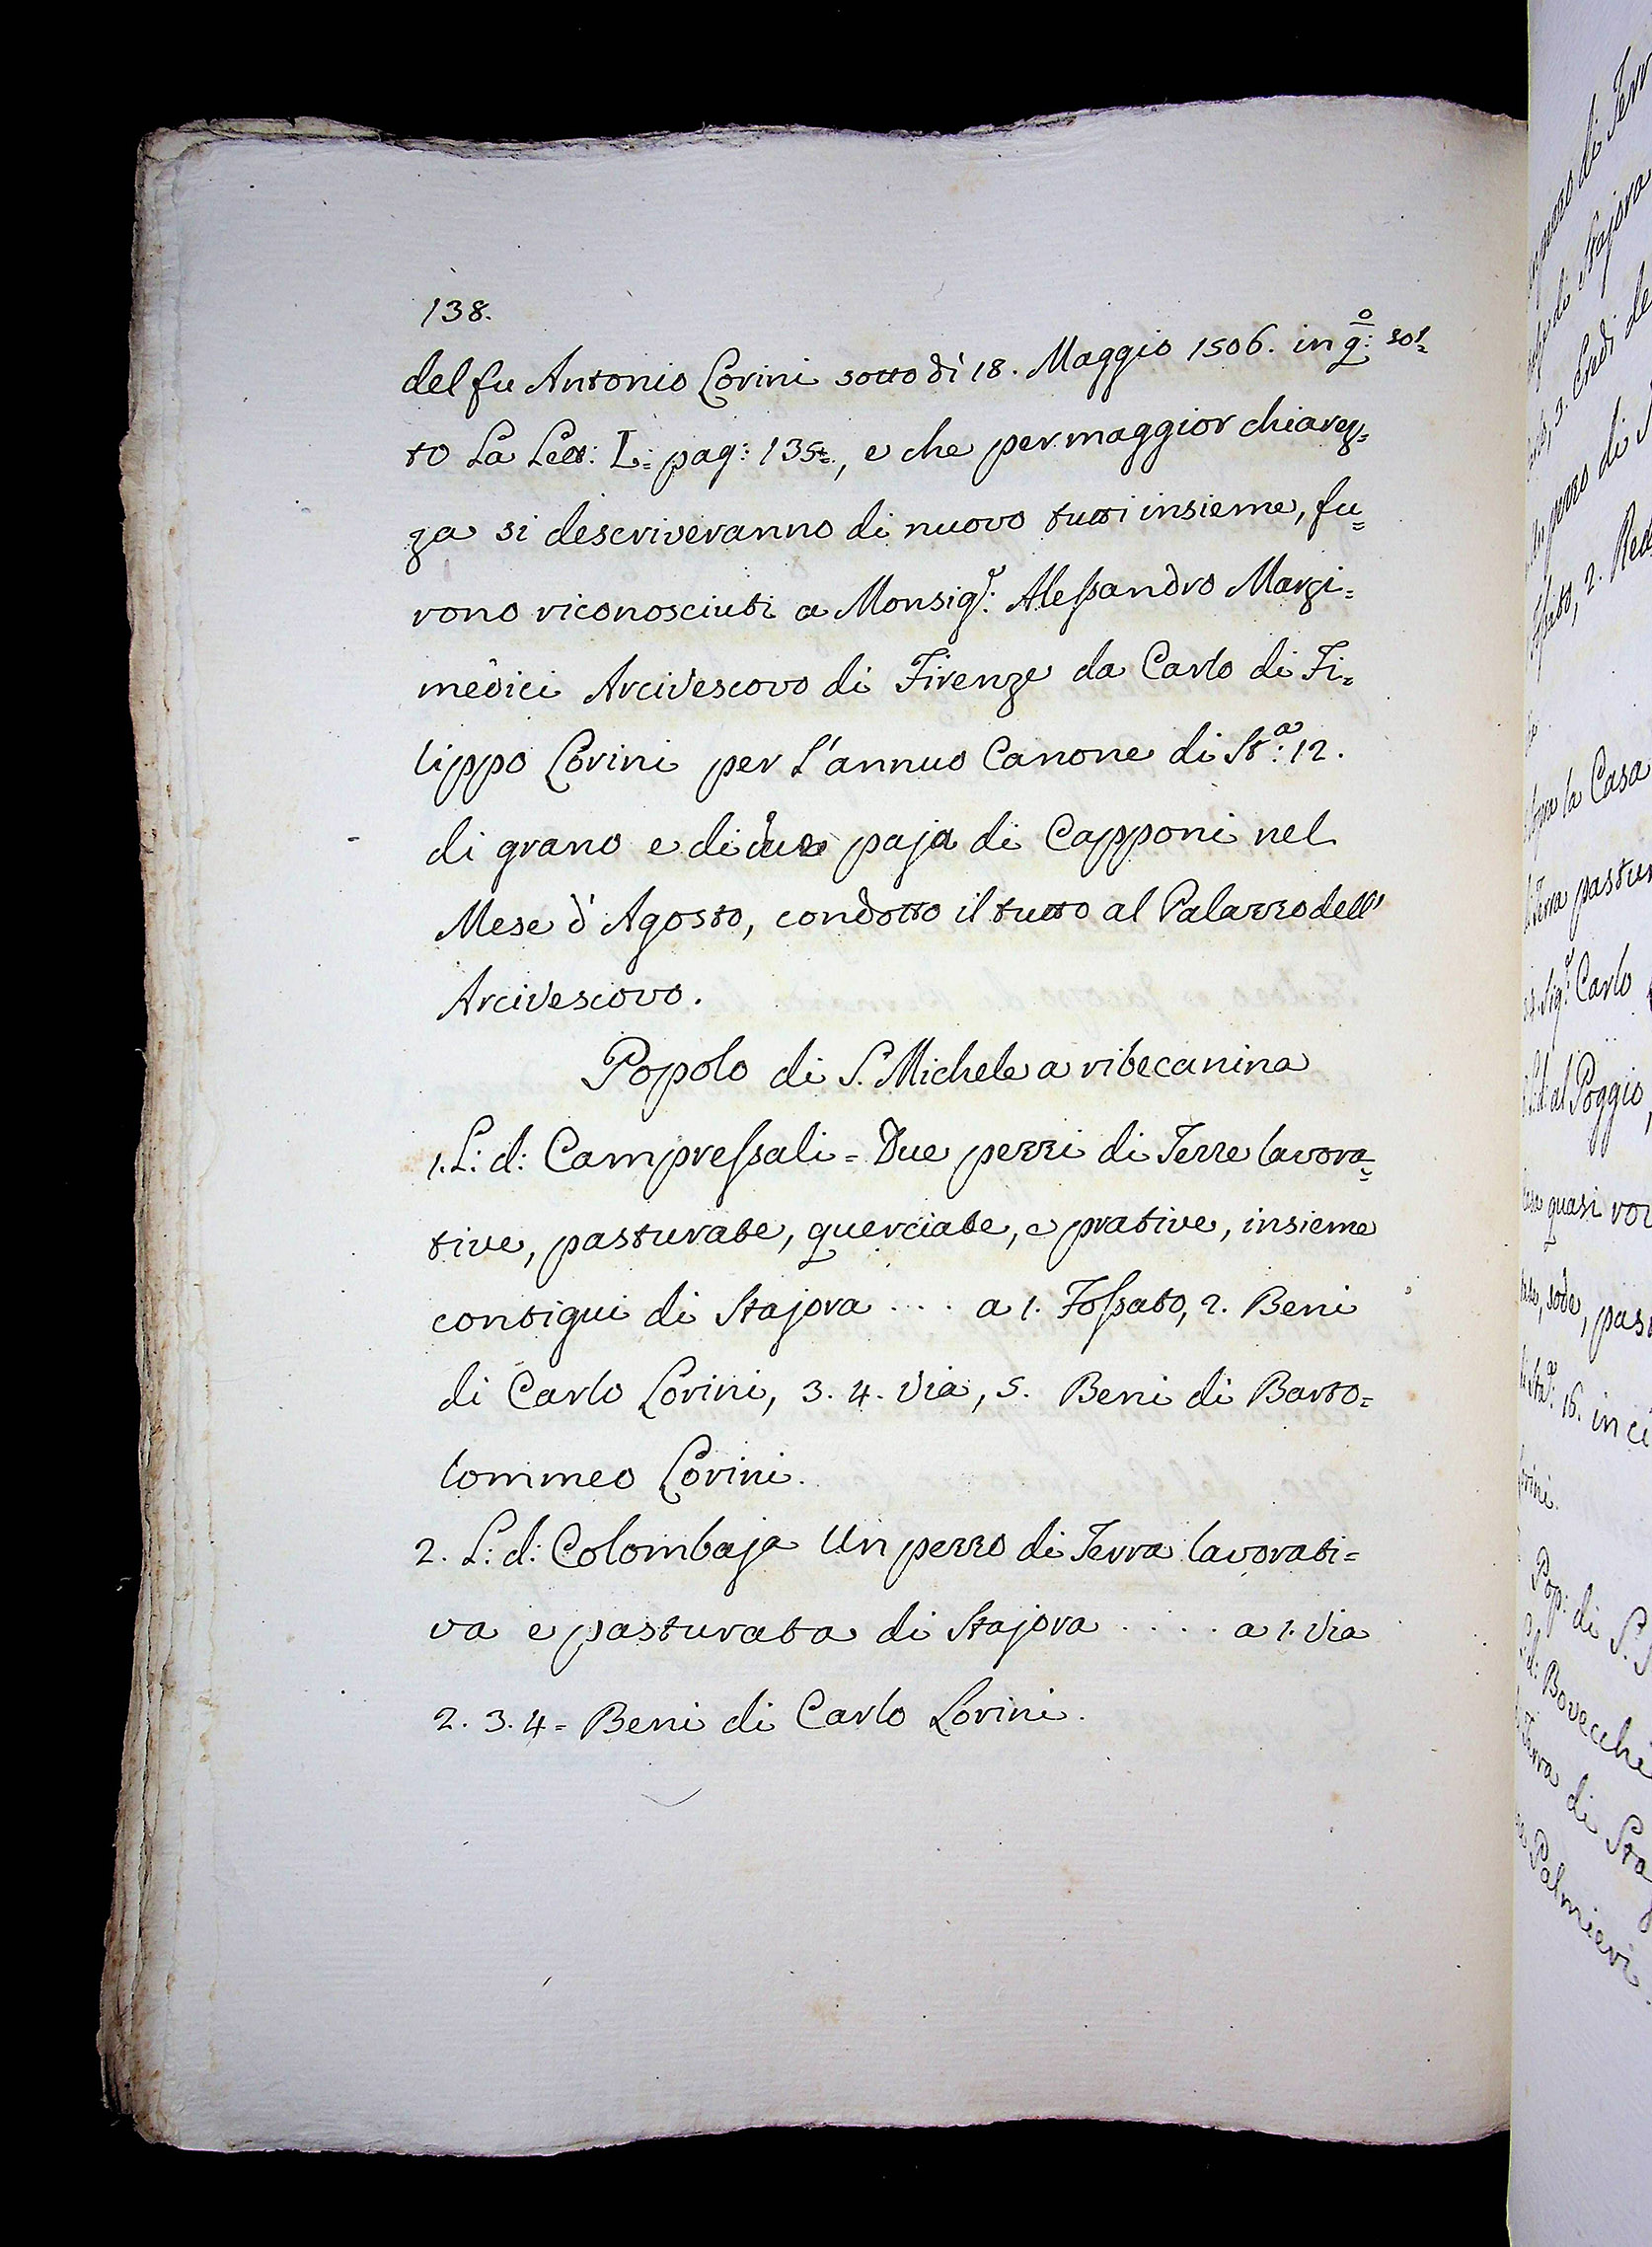 138.
del fu Antonio Lorini sotto dì 18. Maggio 1506. in q̊: sot=
to La Lett: L: pag: 135=, e che per maggior chiarez=
za si descriveranno di nuovo tutti insieme, fu=
rono riconosciuti a Monsig.r: Alessandro Marzi=
medici Arcivescovo di Firenze da Carlo di Fi=
lippo Lorini per l'annuo Canone di St.a: 12.
di grano e di due paja di Capponi nel
Mese d'Agosto, condotto il tutto al Palazzo dell'
Arcivescovo.
Popolo di S. Michele a ribecanina
1. L: d: Campressali = Due pezzi di Terre lavora=
tive, pasturate, querciate, e prative, insieme
contigui di Stajora .... a 1. Fossato, 2. Beni
di Carlo Lorini, 3. 4. Via, 5. Beni di Barto=
lommeo Lorini.
2. L: d: Colombaja Un pezzo di Terra lavorati=
va e pasturata di Stajora .... a 1. Via
2. 3. 4 = Beni di Carlo Lorini.
di Terr
di Stajora
3. Eredi de
pezzo di
2. Red
la Casa
Terra pastur
Sig.r: Carlo
al Poggio,
quasi
sode, past
16. in
Pop: di S.
Bovecchi
Terra di Sta
Palmieri.